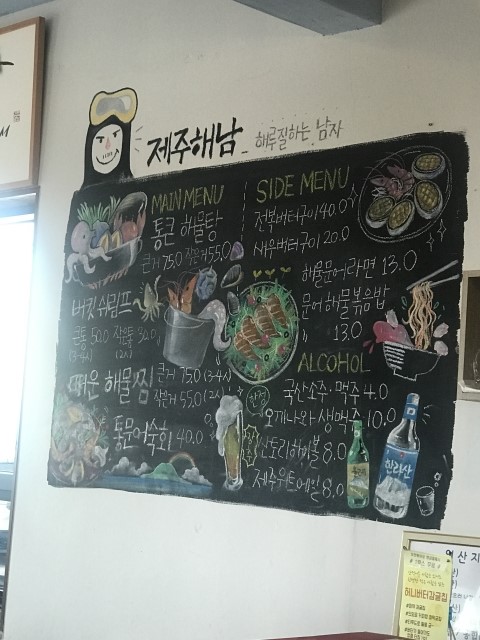 제주해남
해루질하는 남자
MAIN MENU
통큰 해물탕
큰거 75.0 작은거 55.0
버킷쉬림프
큰통 50.0 작은통 30.0
(3-4人) (2人)
매운 해물찜 큰거 75.0 (3-4人)
작은거 55.0 (2人)
통문어숙회 40.0
SIDE MENU
전복버터구이 40.0
새우버터구이 20.0
해물문어라면 13.0
문어 해물볶음밥
13.0
ALCOHOL
국산소주·맥주 4.0
오키나와 생맥주 10.0
산토리하이볼 8.0
제주위트에일 8.0
한라산
허니버터감귤칩